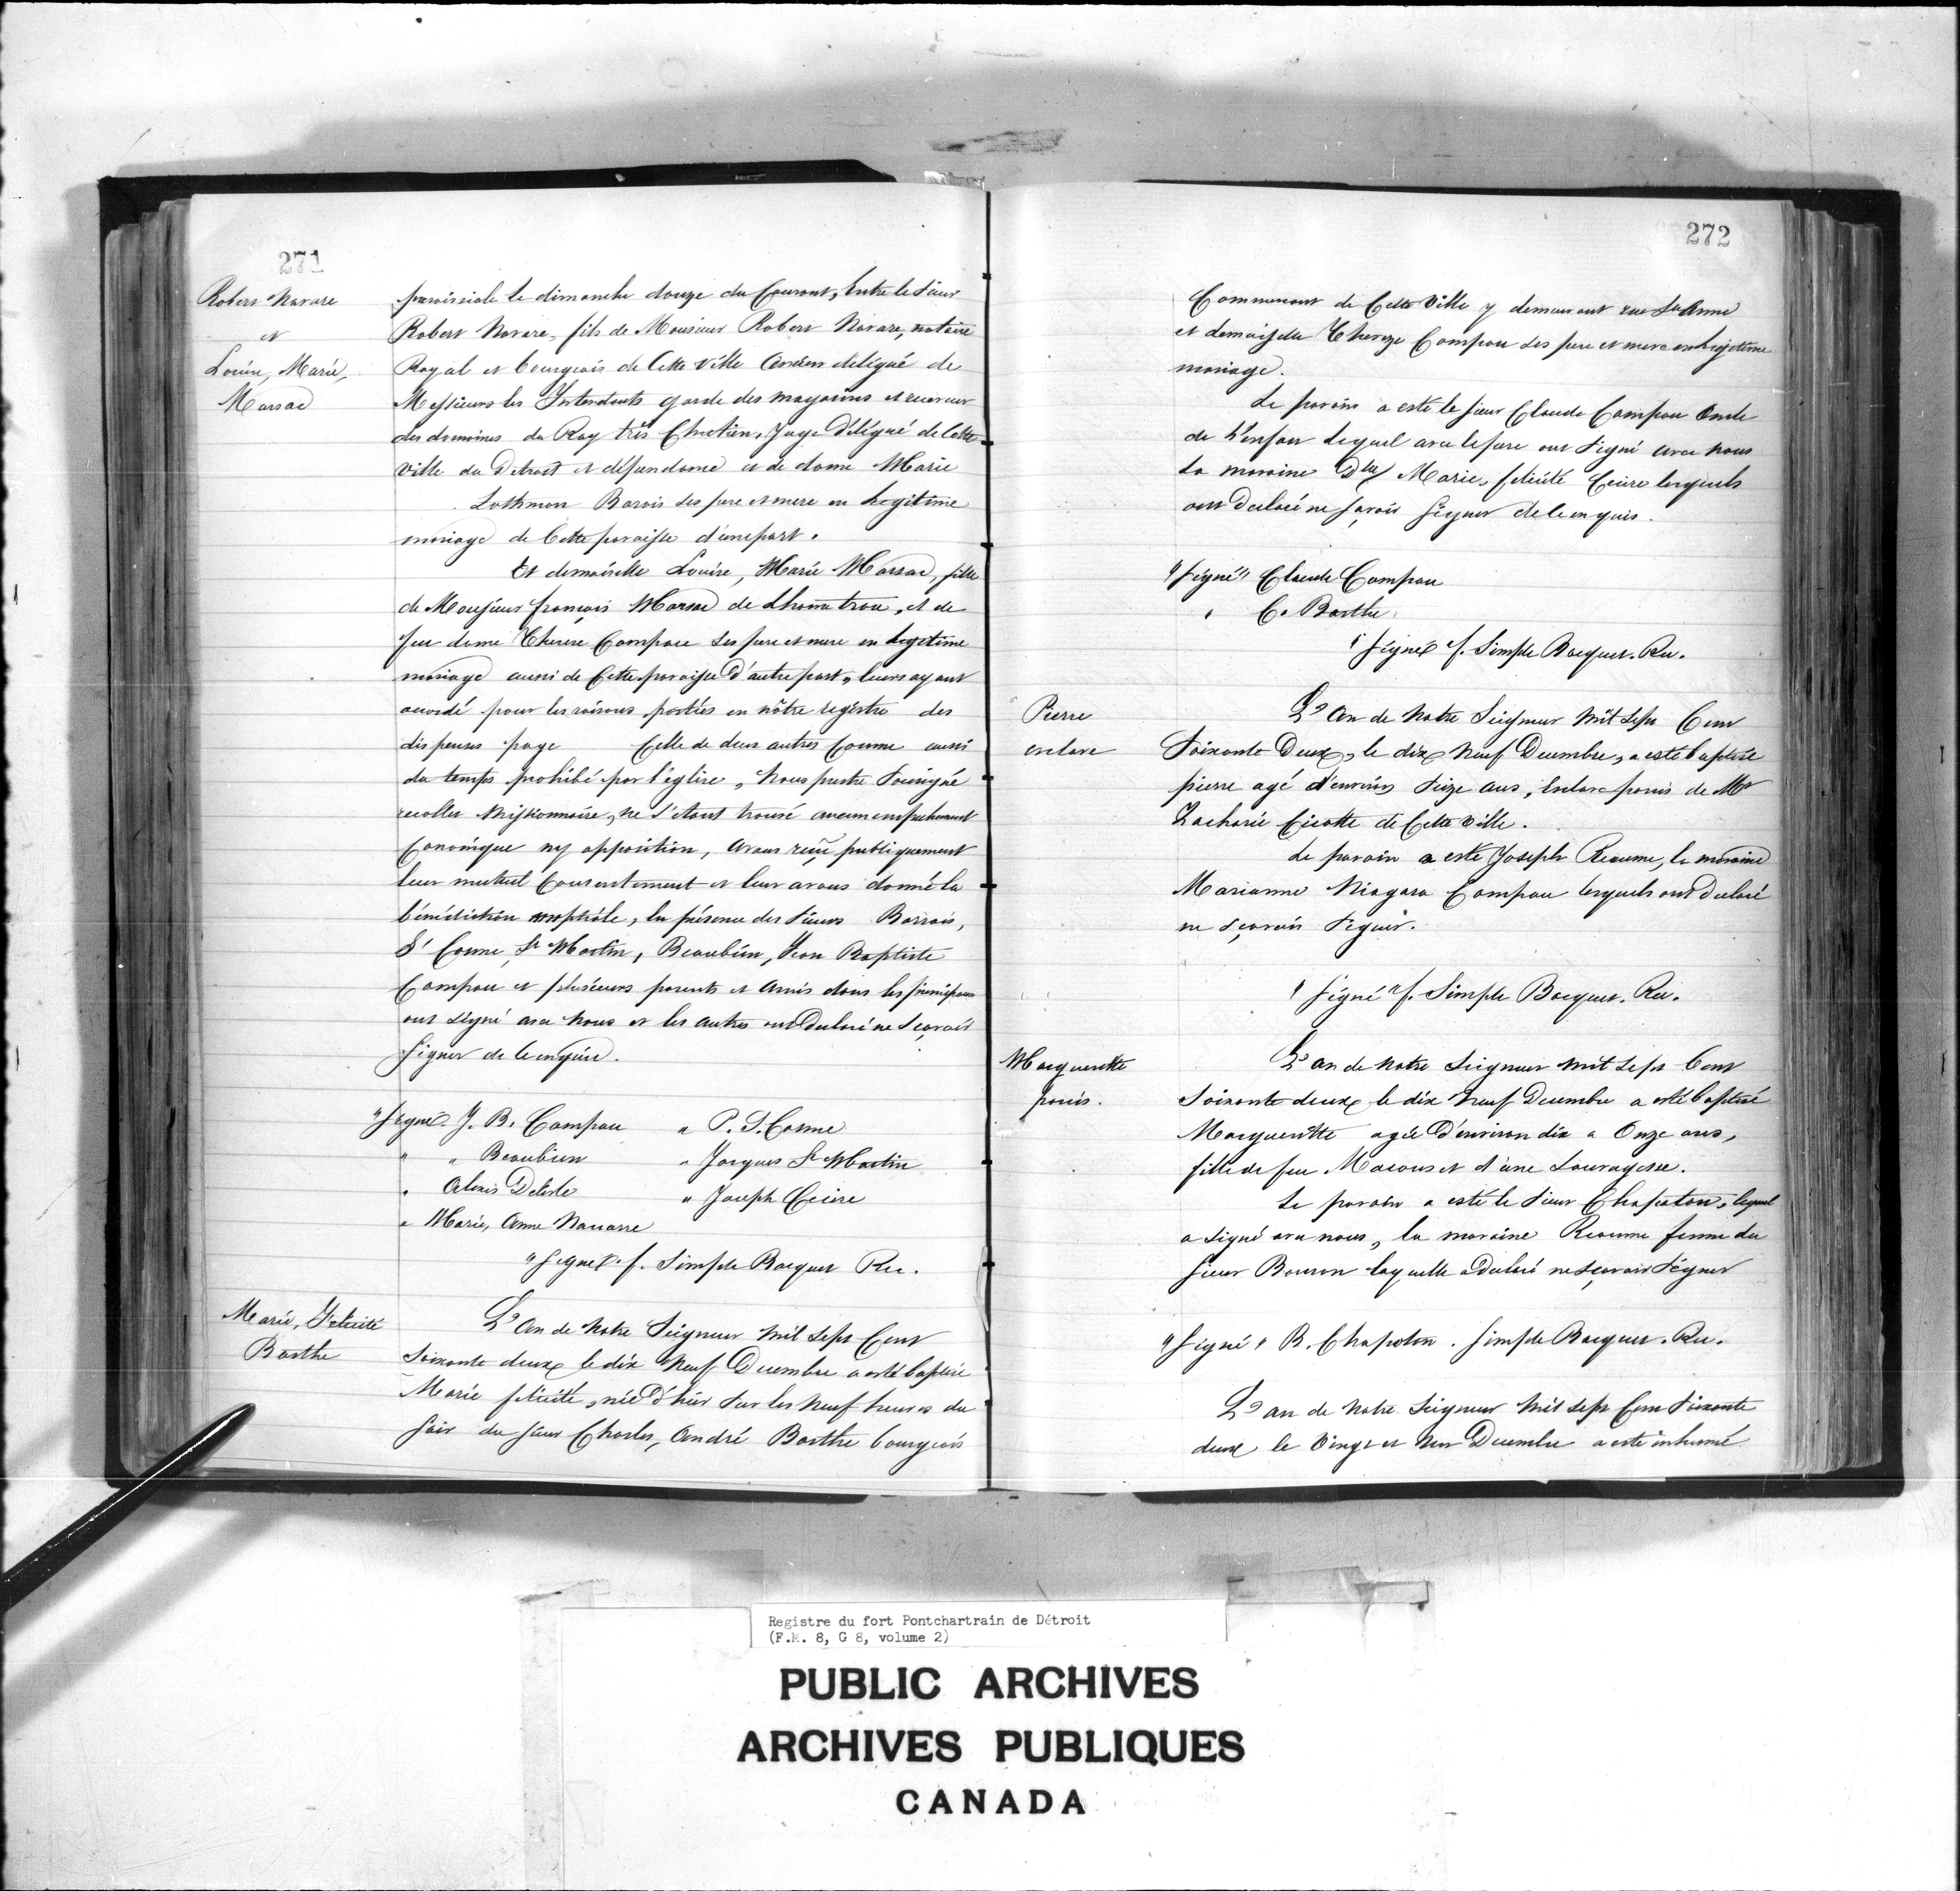 271
Robert Navare
et
Louise, Marie,
Marsac
paroissiale le dimanche douze du Courant, Entre le Sieur
Robert Navare, fils de Monsieur Robert Navare, notaire
Royal et bourgeois de Cette Ville Ancien délégué de
Messieurs les Intendants garde des magasins et receveur
des domaines du Roy très Chretien, Juge Délégué de Cette
Ville du Detroit et défendame et de dame Marie
Lothmon Barois ses pere et mere en Legitime
mariage de Cette paroisse d'une part.
Et demoiselle Louise, Marie Marsac, fille
de Monsieur françois Marsac de Lhom̃e trou, et de
feu dame Therese Compau ses pere et mere en Legitime
mariage aussi de Cette paroisse d'autre part, leurs ayant
accordé pour les raisons portées en nôtre registre des
dispenses page Celle de deux autres Comme aussi
du temps prohibé par l'église, Nous prestre Soussigné
recollet Missionnaire, ne s'étant trouvé aucun empechement
Canonique ny opposition, Avons reçu publiquement
leur mutuel Consentement et leur avons donné la
bénédiction nuptiale, En présence des Sieurs Barrois,
St Cosme, St Martin, Beaubien, Jean Baptiste
Campau et plusieurs parents et Amis dons les principaux
ont signé avec Nous et les autres ont Déclaré ne Sçavoir
Signer de ce enquis.
"Signé. J. B. Campau " P. S. Cosme
" " Beaubien " Jacques St Martin
" Alexis Delisle " Joseph Cecire
" Marie, Anne Navarre
"Signé. f. Simple Bocquet Rec.
Marie, Felicité
Barthe
L'An de Notre Seigneur Mil Sept Cent
Soixante deux le dix Neuf Decembre a esté baptisé
Marie felicité, née D'hier Sur les Neuf heures du
Soir du Sieur Charles, André Barthe bourgeois
272
Commercant de Cette Ville y demeurant rue Ste Anne
et demoiselle Thereze Compau ses pere et mere en Legitime
mariage.
Le parain a esté le Sieur Claude Campau Oncle
de L'enfan Lequel avec le pere ont Signé avec Nous
La maraine Dlle Marie, felicité Cecire lesquels
ont Declaré ne Savoir Signer de ce enquis.
"Signé" Claude Campau
" C. Barthe
" Signé f. Simple Bocquet. Rec.
Pierre
esclave
L'An de Notre Seigneur Mil Sept Cent
Soixante Deux, le dix Neuf Decembre, a esté baptisé
pierre agé d'environ Seize ans, Esclave panis de Mr
Zacharie Cicotte de Cette Ville.
Le parain a esté Joseph Reaume, la maraine
Marianne Niagara Campau lesquels ont Declaré
ne Sçavoir Signer.
" Signé" f. Simple Bocquet. Rec.
Marguerette
panis.
L'an de Notre Seigneur Mil Sept Cent
Soixante deux le dix Neuf Decembre a esté baptisé
Margueritte agée D'environ dix a Onze ans,
fille de feu Macons et d'une Sauvagesse.
Le parain a esté le Sieur Chapoton, lequel
a Signé avec nous, la maraine Reaume femme du
Sieur Bouron laquelle a Declaré ne sçavoir Signer
"Signé" B. Chapoton. Simple Bocquet. Rec.
L'an de Notre Seigneur Mil Sept Cent Soixante
deux le Vingt et Un Decembre a esté inhumé
Registre du fort Pontchartrain de Détroit
(F.M. 8, G 8, volume 2)
PUBLIC ARCHIVES
ARCHIVES PUBLIQUES
CANADA